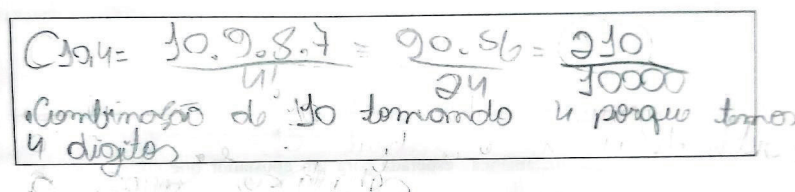 C10,4 = 10.9.8.7 / 4! = 90.56 / 24 = 210 / 10000
.Combinação de 10 tomando 4 porque temos
4 digitos